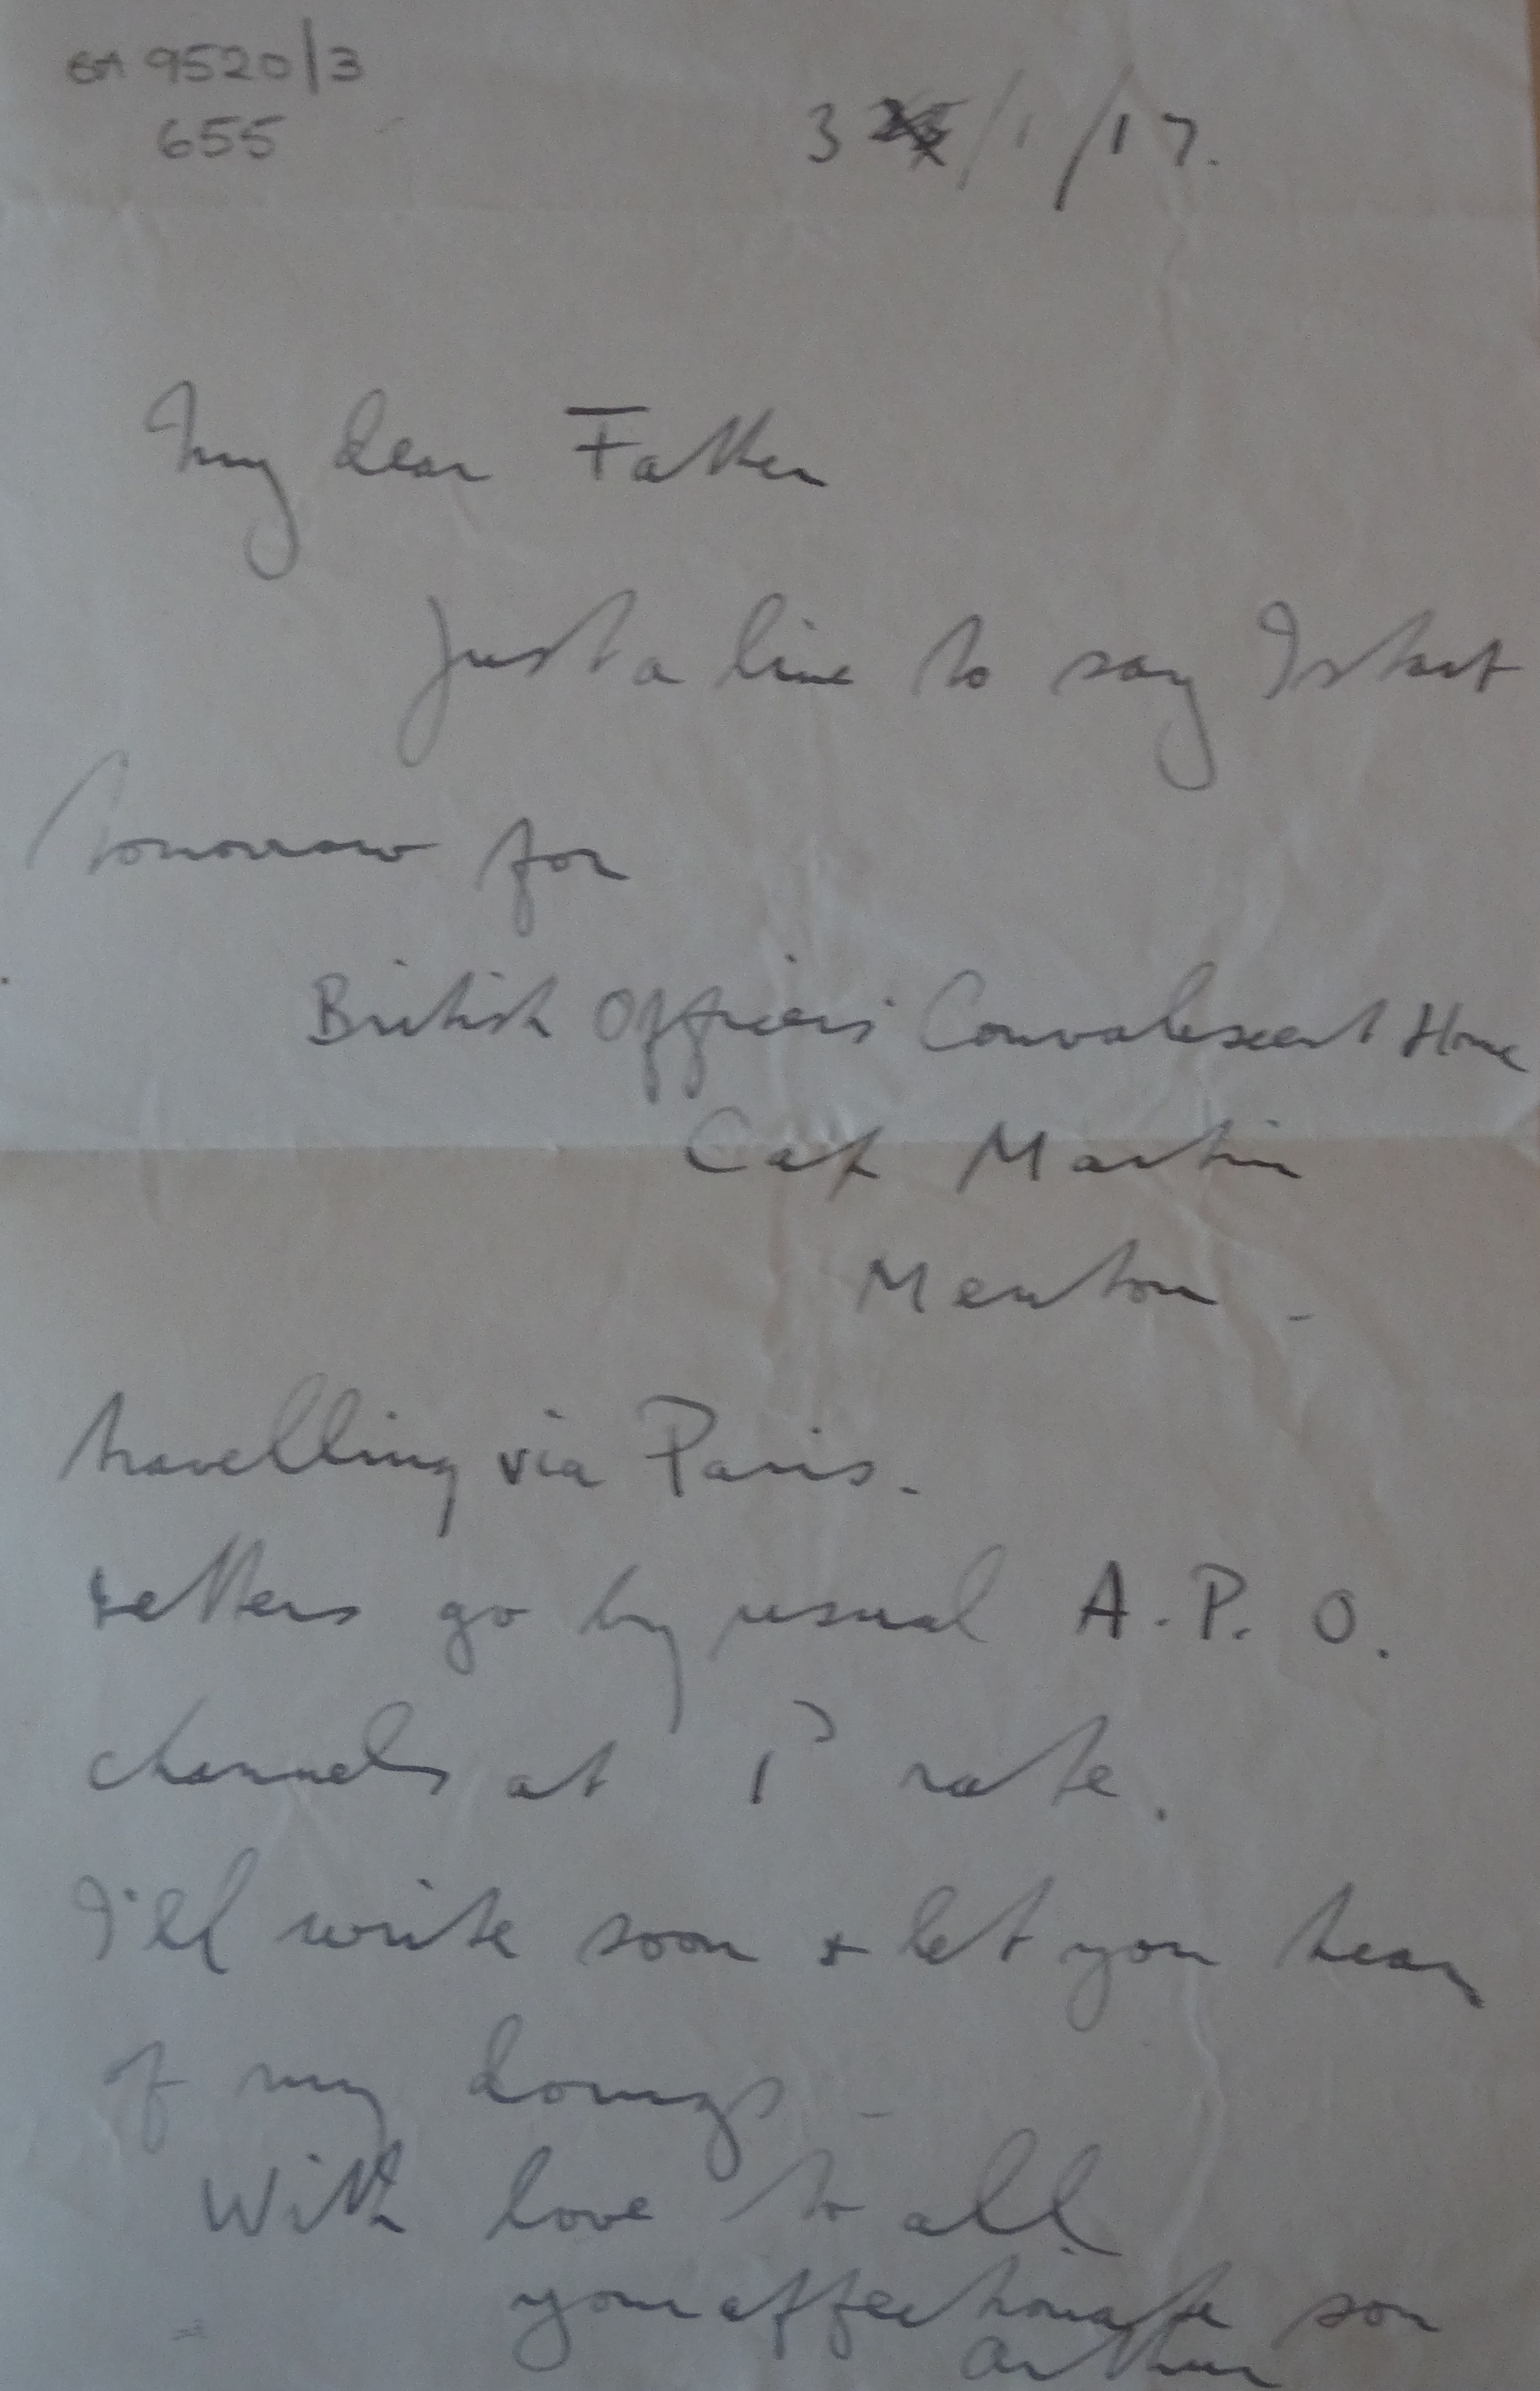 GA 9520/3
655
3/1/17.
My dear Father
Just a line to say I start
tomorrow for
British Officers' Convalescent Home
Cap Martin
Menton -
travelling via Paris.
Letters go by usual A.P.O.
channels at 1ᴰ rate.
I'll write soon + let you hear
of my doings -
With love to all
your affectionate son
Arthur